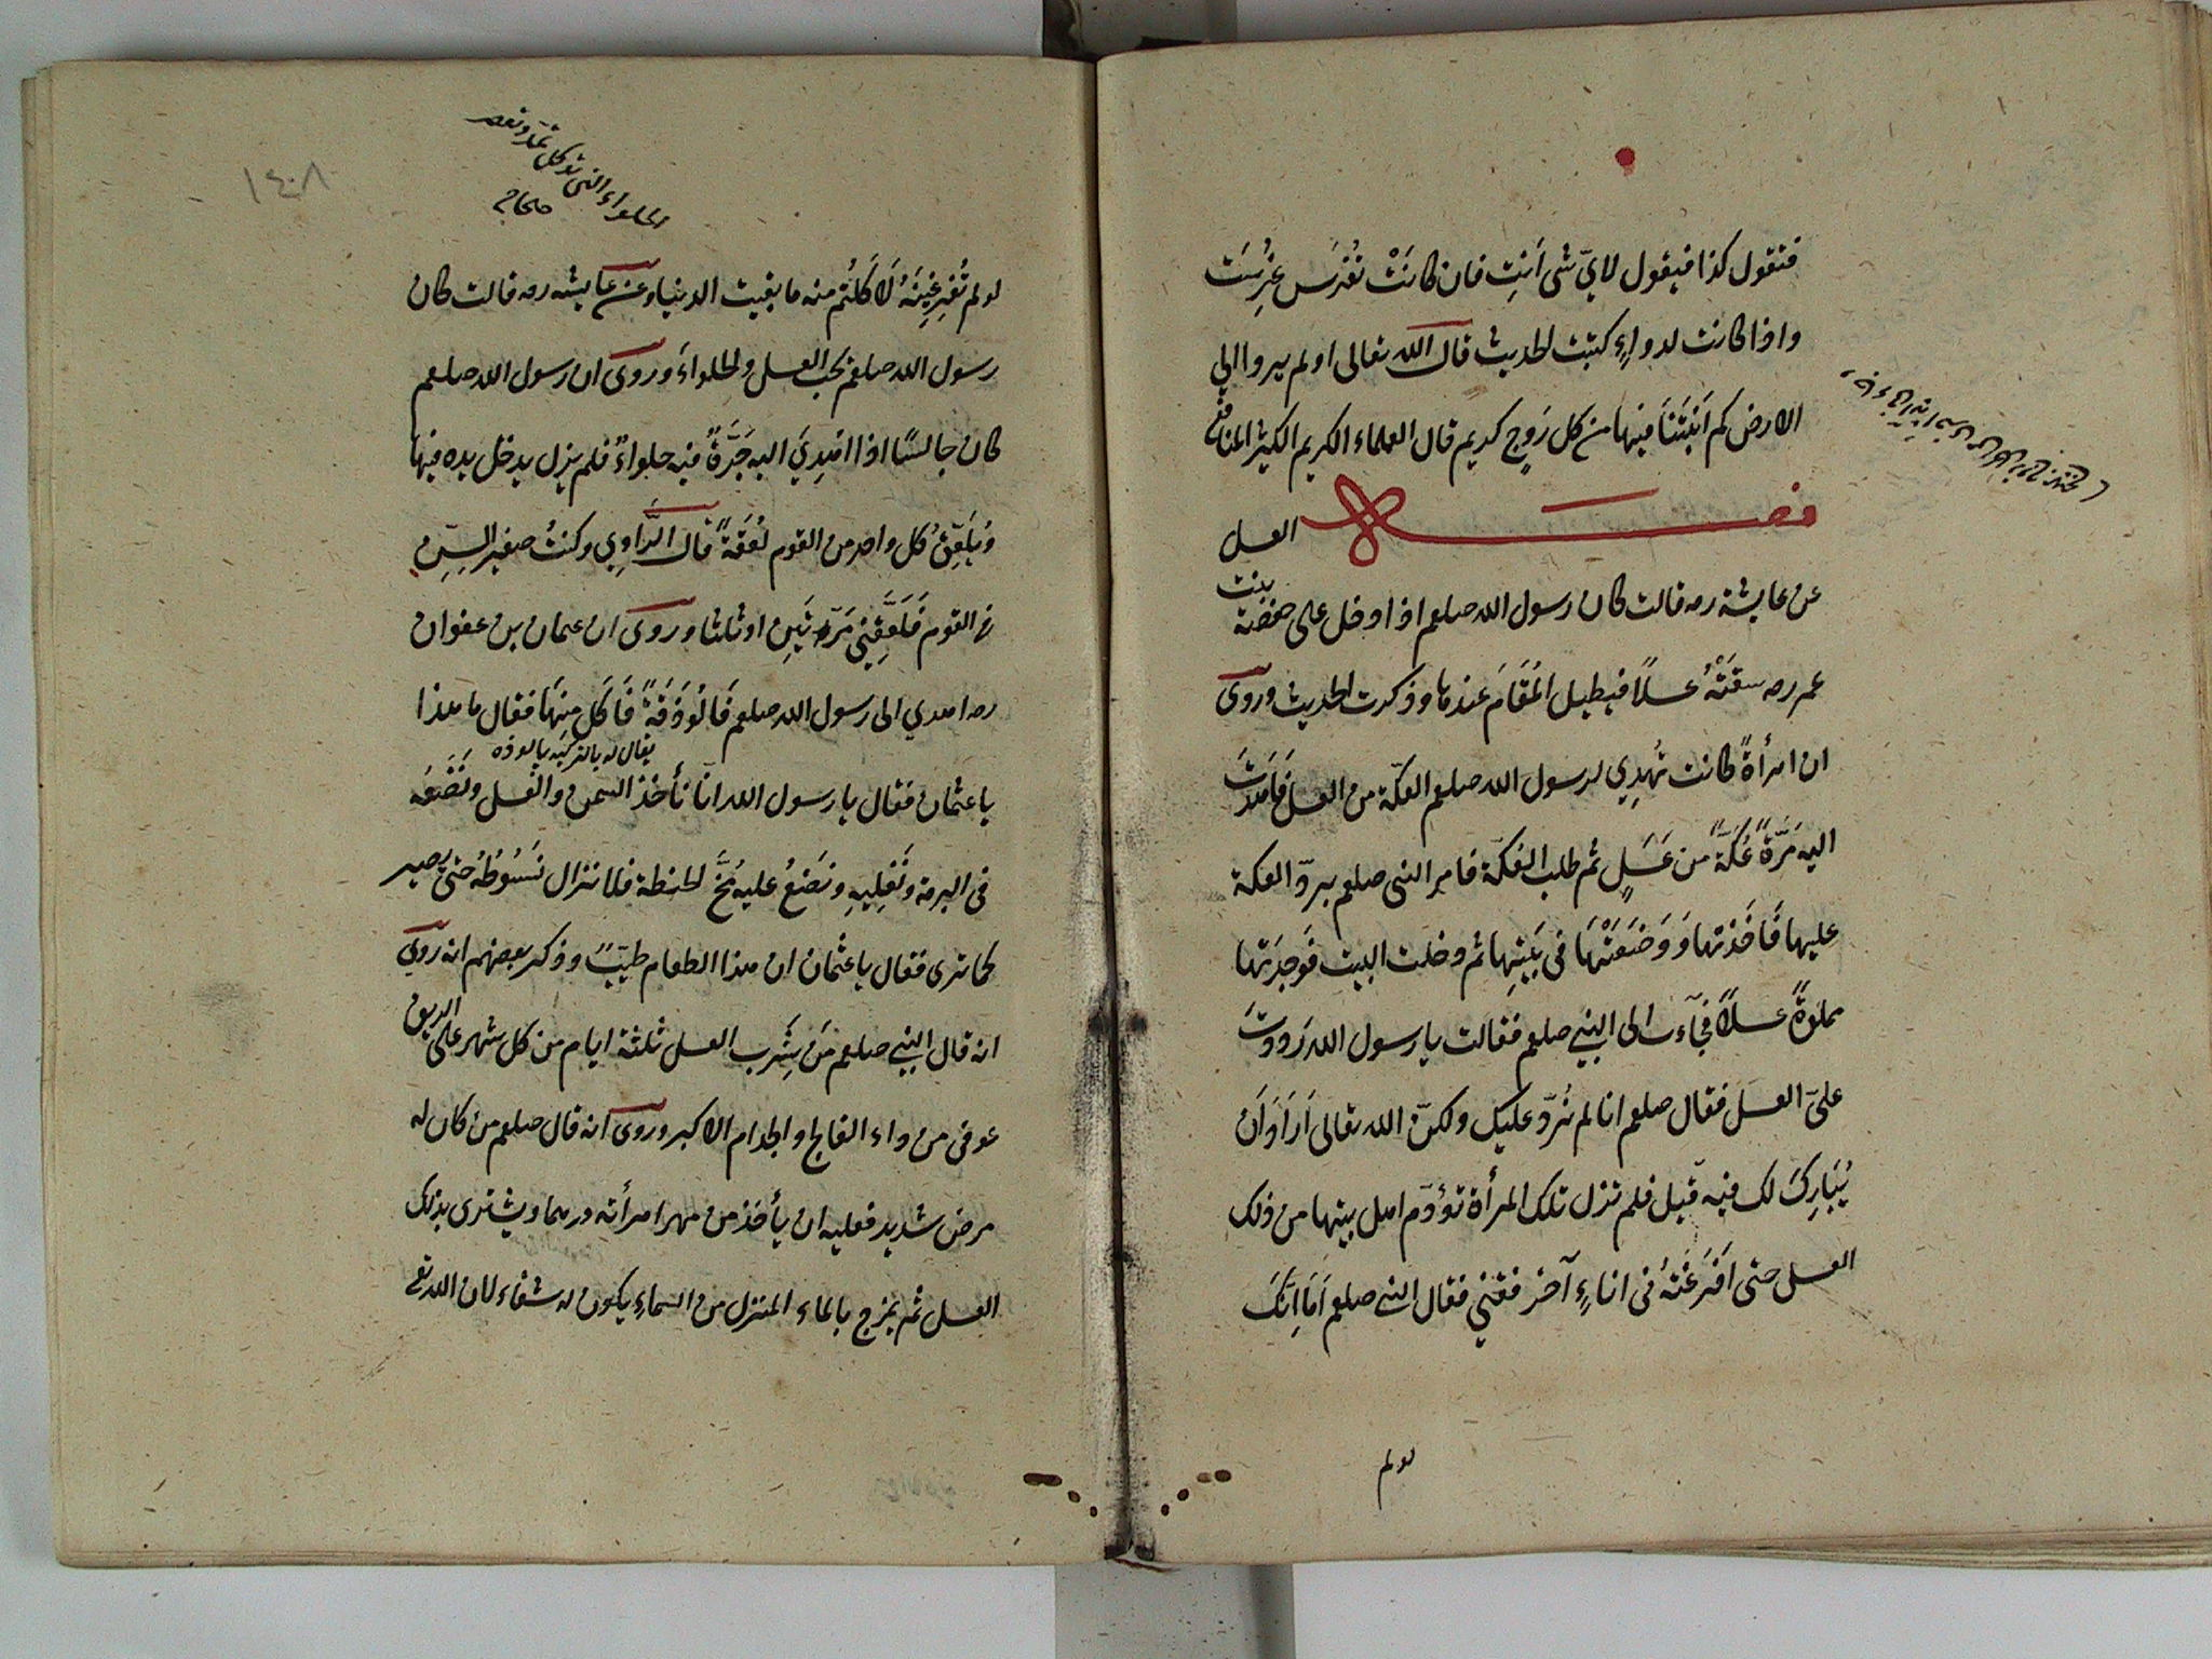 فتقول كذا فيقول لايّ شى اَنتِ فان كانَتْ تُغرَس غُرِسَت
واذا كانت لدواءٍ كتبت الحديث قال الله تعالى اولم يروا الي
الارض كم اَنبَتنَا فيها من كل زوج كريم قال العلماء الكريم الكثير المنافع
فصل العسل
عن عايشة رضه قالت كان رسول الله صلعم اذا دخل على حفصة بنت
عمر رضه سقَتْهُ عسلاً فيطيل المُقَامَ عندها وذكرت الحديث وروى
ان امرأةً كانت تُهدِي لرسول الله صلعم العكّة من العسل فَاَهدَتْ
اليه مَرَّةً عُكَّةً من عَسَلٍ ثم طلب العُكّة فامر النبى صلعم بردّ العكة
عليها فَاَخَذتها وَوَضَعَتْهَا فى بَيتِها ثم دخلت البيت فَوجدَتها
مملوةً عسلاً فجآءت الى النبي صلعم فقالت يا رسول الله رَدَدتَ
عليّ العسل فقال صلعم انا لم نُردّ عليك ولكنّ الله تعالى اَرَادَ اَن
يُبَارِكَ لك فيه قيل فلم تزل تلك المرأة تؤدّم اهل بيتها من ذلك
العسل حتى اَفرَغَتهُ فى اناءٍ آخر ففنى فقال النبى صلعم اَمَا اِنّكَ
لو لم
الحلواء التى تؤكل
لو لم تُفرِغِينَهُ لَاَكَلتُم منه ما بقيت الدنيا وعن عايشه رضه قالت كان
رسول الله صلعم يحب العسل والحلواءَ وروى ان رسول الله صلعم
كان جالسًا اذا اهدِيَ اليه جَرَّةً فيه حلواءٌ فلم يزل يدخل يده فيها
ويُلَعِّقُ كل واحد من القوم لُعقَةً قال الرَّاوِي وكنتُ صغير السِنِّ
فى القوم فَلَعَّقِنِي مَرّتَينِ او ثلثا وروى ان عثمان بن عفوان
رضه اهدي الى رسول الله صلعم فَالُوذَقَةً فَاَكَلَ مِنهَا فقال ما هذا
يقال له بالتركيه پالوذه
يا عثمان فقال يا رسول الله انا نأخذ السمن والعَسل ونَضَعُه
فى البرمة ونُغلِيهِ ونَضَعُ عليه مُخَّ الحنطة فلا نزال نَسُوطُهُ حتى يصير
كما ترى فقال يا عثمان ان هذا الطعام طيّبٌ وذكر بعضهم انه روي
انه قال النبي صلعم مَن شَرِب العسل ثلثة ايام من كل شهر على الريق
عوفى من داء الفالج والجدام الاكبر وروى انه قال صلعم من كان له
مرض شديد فعليه ان يأخذ من مهر امرأته درهما ويشترى بذلك
العسل ثم يمزج بالماء المنزل من السماءِ يكون له شفاء لان الله تع